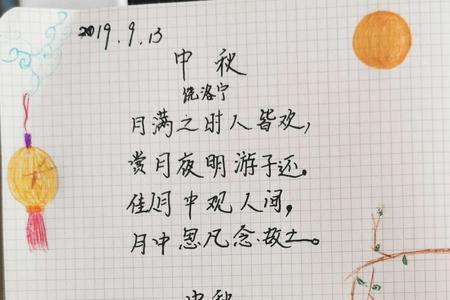 2019.9.13
中秋
饶洛宁
月满之时人皆欢，
赏月夜明游子还。
佳月中观人间，
月中思凡念故土。
中秋